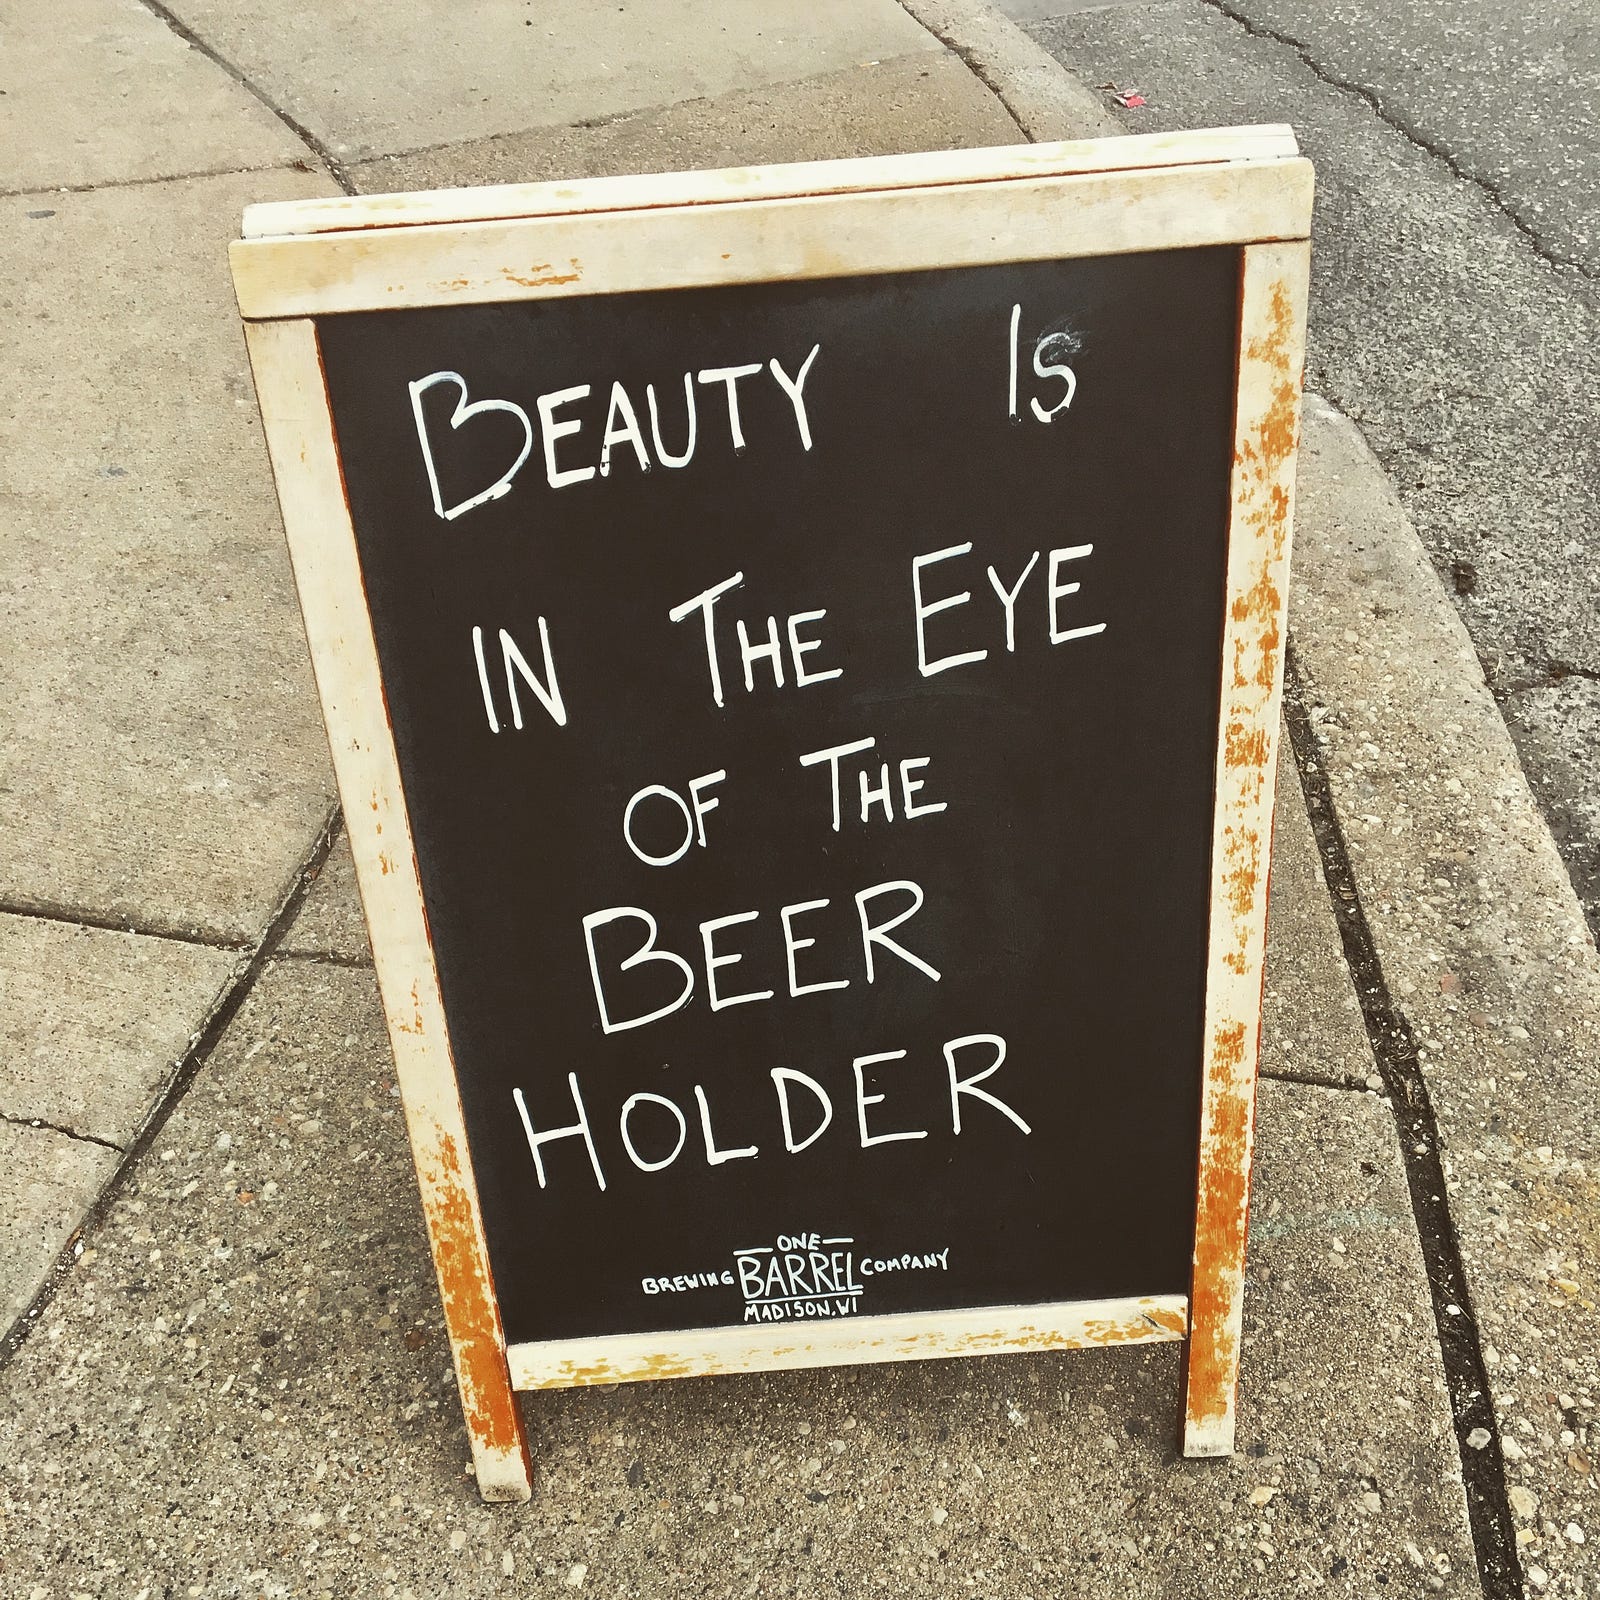 BEAUTY IS
IN THE EYE
OF THE
BEER
HOLDER
ONE
BREWING BARREL COMPANY
MADISON, WI